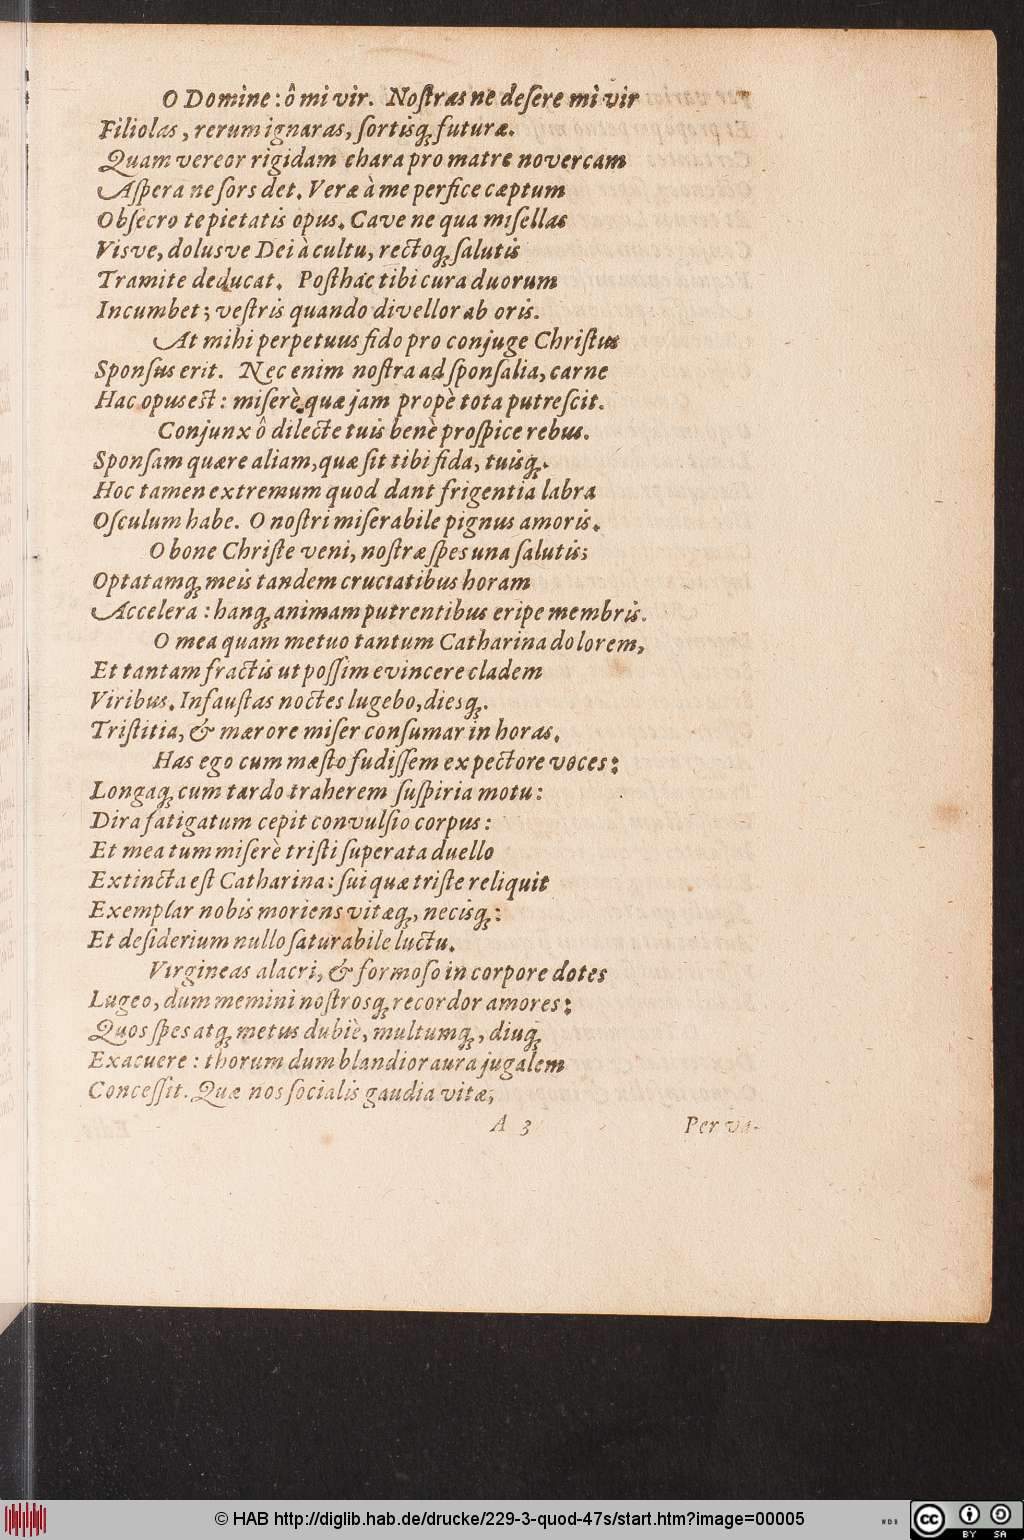 O Domine: ô mi vir. Nostras ne desere mi vir
Filiolas, rerum ignaras, sortisq́ꝫ futuræ.
Quam vereor rigidam chara pro matre novercam
Aspera ne sors det. Veræ à me perfice cæptum
Obsecro te pietatis opus. Cave ne qua misellas
Visve, dolusve Dei à cultu, rectoq́ꝫ salutis
Tramite deducat. Posthac tibi cura duorum
Incumbet; vestris quando divellor ab oris.
At mihi perpetuus fido pro conjuge Christus
Sponsus erit. Nec enim nostra ad sponsalia, carne
Hac opus est: miserè quæ jam propè tota putrescit.
Conjunx ô dilecte tuis benè prospice rebus.
Sponsam quære aliam, quæ sit tibi fida, tuisq́ꝫ.
Hoc tamen extremum quod dant frigentia labra
Osculum habe. O nostri miserabile pignus amoris.
O bone Christe veni, nostræ spes una salutis;
Optatamq́ꝫ meis tandem cruciatibus horam
Accelera: hanq́ꝫ animam putrentibus eripe membris.
O mea quam metuo tantum Catharina dolorem,
Et tantam fractis ut possim evincere cladem
Viribus. Infaustas noctes lugebo, diesq́ꝫ.
Tristitia, & mærore miser consumar in horas.
Has ego cum mæsto fudissem expectore voces:
Longaq́ꝫ cum tardo traherem suspiria motu:
Dira fatigatum cepit convulsio corpus:
Et mea tum miserè tristi superata duello
Extincta est Catharina: sui quæ triste reliquit
Exemplar nobis moriens vitæq́ꝫ, necisq́ꝫ:
Et desiderium nullo saturabile luctu.
Virgineas alacri, & formoso in corpore dotes
Lugeo, dum memini nostrosq́ꝫ recordor amores:
Quos spes atq́ꝫ metus dubiè, multumq́ꝫ, diuq́ꝫ
Exacuere: thorum dum blandior aura jugalem
Concessit. Quæ nos socialis gaudia vitæ,
A 3 Per va-
© HAB http://diglib.hab.de/drucke/229-3-quod-47s/start.htm?image=00005
WDB
cc BY SA